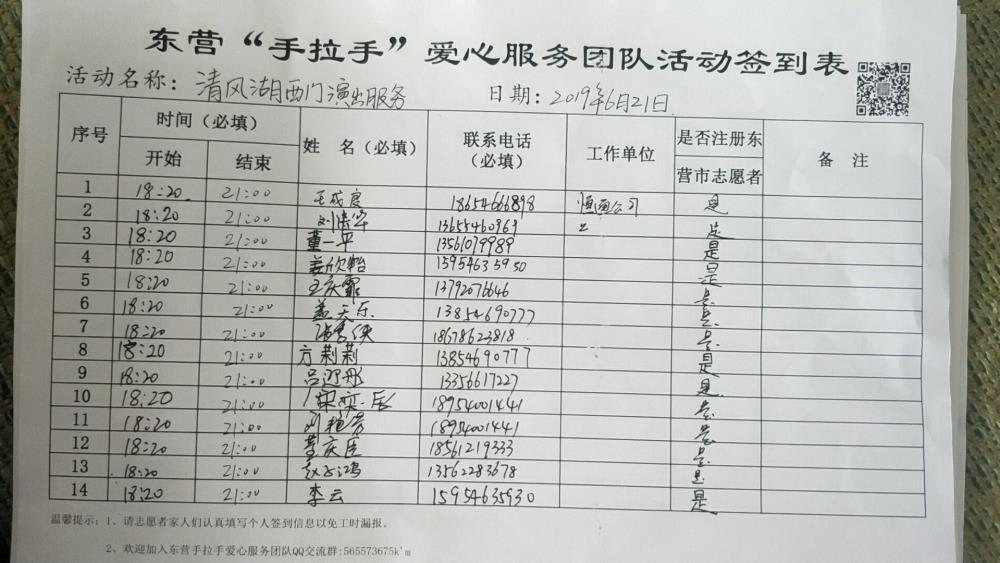 东营“手拉手”爱心服务团队活动签到表
活动名称：清风湖西门演出服务 日期：2019年6月21日
序号 时间（必填） 姓 名（必填） 联系电话（必填） 工作单位 是否注册东营市志愿者 备 注
开始 结束
1 18:20 21:00 18654666898 是
2 18:20 21:00 刘清华 13655460969 是
3 18:20 21:00 董一平 13561079989 是
4 18:20 21:00 姜欣怡 15954635950 是
5 18:20 21:00 王庆霞 13792076646 是
6 18:20 21:00 盖天乐 13854690777 是
7 18:20 21:00 18678623818 是
8 18:20 21:00 方莉莉 13854690777 是
9 18:20 21:00 吕迎彤 13356617227 是
10 18:20 21:00 宋奕辰 18954001441 是
11 18:20 21:00 18954001441 是
12 18:20 21:00 18561219333 是
13 18:20 21:00 13562283678 是
14 18:20 21:00 李云 15954635930 是
温馨提示：1、请志愿者家人们认真填写个人签到信息以免工时漏报。
2、欢迎加入东营手拉手爱心服务团队QQ交流群:565573675k'm